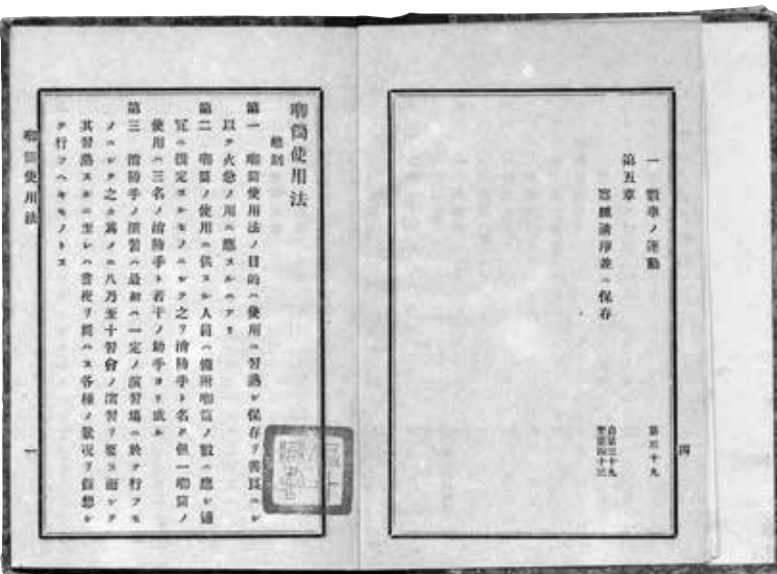 四
一 數車ノ運動 第三十九
第五章
器械清淨並ニ保存 自第三十九
至第四十三
喞筒使用法
總則
第一 喞筒使用法ノ目的ハ使用ニ習熟シ保存ヲ善良ニシ
以テ火急ノ用ニ應スルニアリ
第二 喞筒ノ使用ニ供スル人員ハ備附喞筒ノ數ニ應シ適
宜ニ撰定スルモノニシテ之ヲ消防手ト名ク但一喞筒ノ
使用ハ三名ノ消防手ト若干ノ助手ヨリ成ル
第三 消防手ノ演習ハ最初ハ一定ノ演習場ニ於テ行フモ
ノニシテ之カ爲メニ八乃至十習會ノ演習ヲ要ス而シテ
其習熟スルニ至レハ晝夜ヲ問ハス各種ノ景況ヲ假想シ
テ行フヘキモノトス
喞筒使用法
一